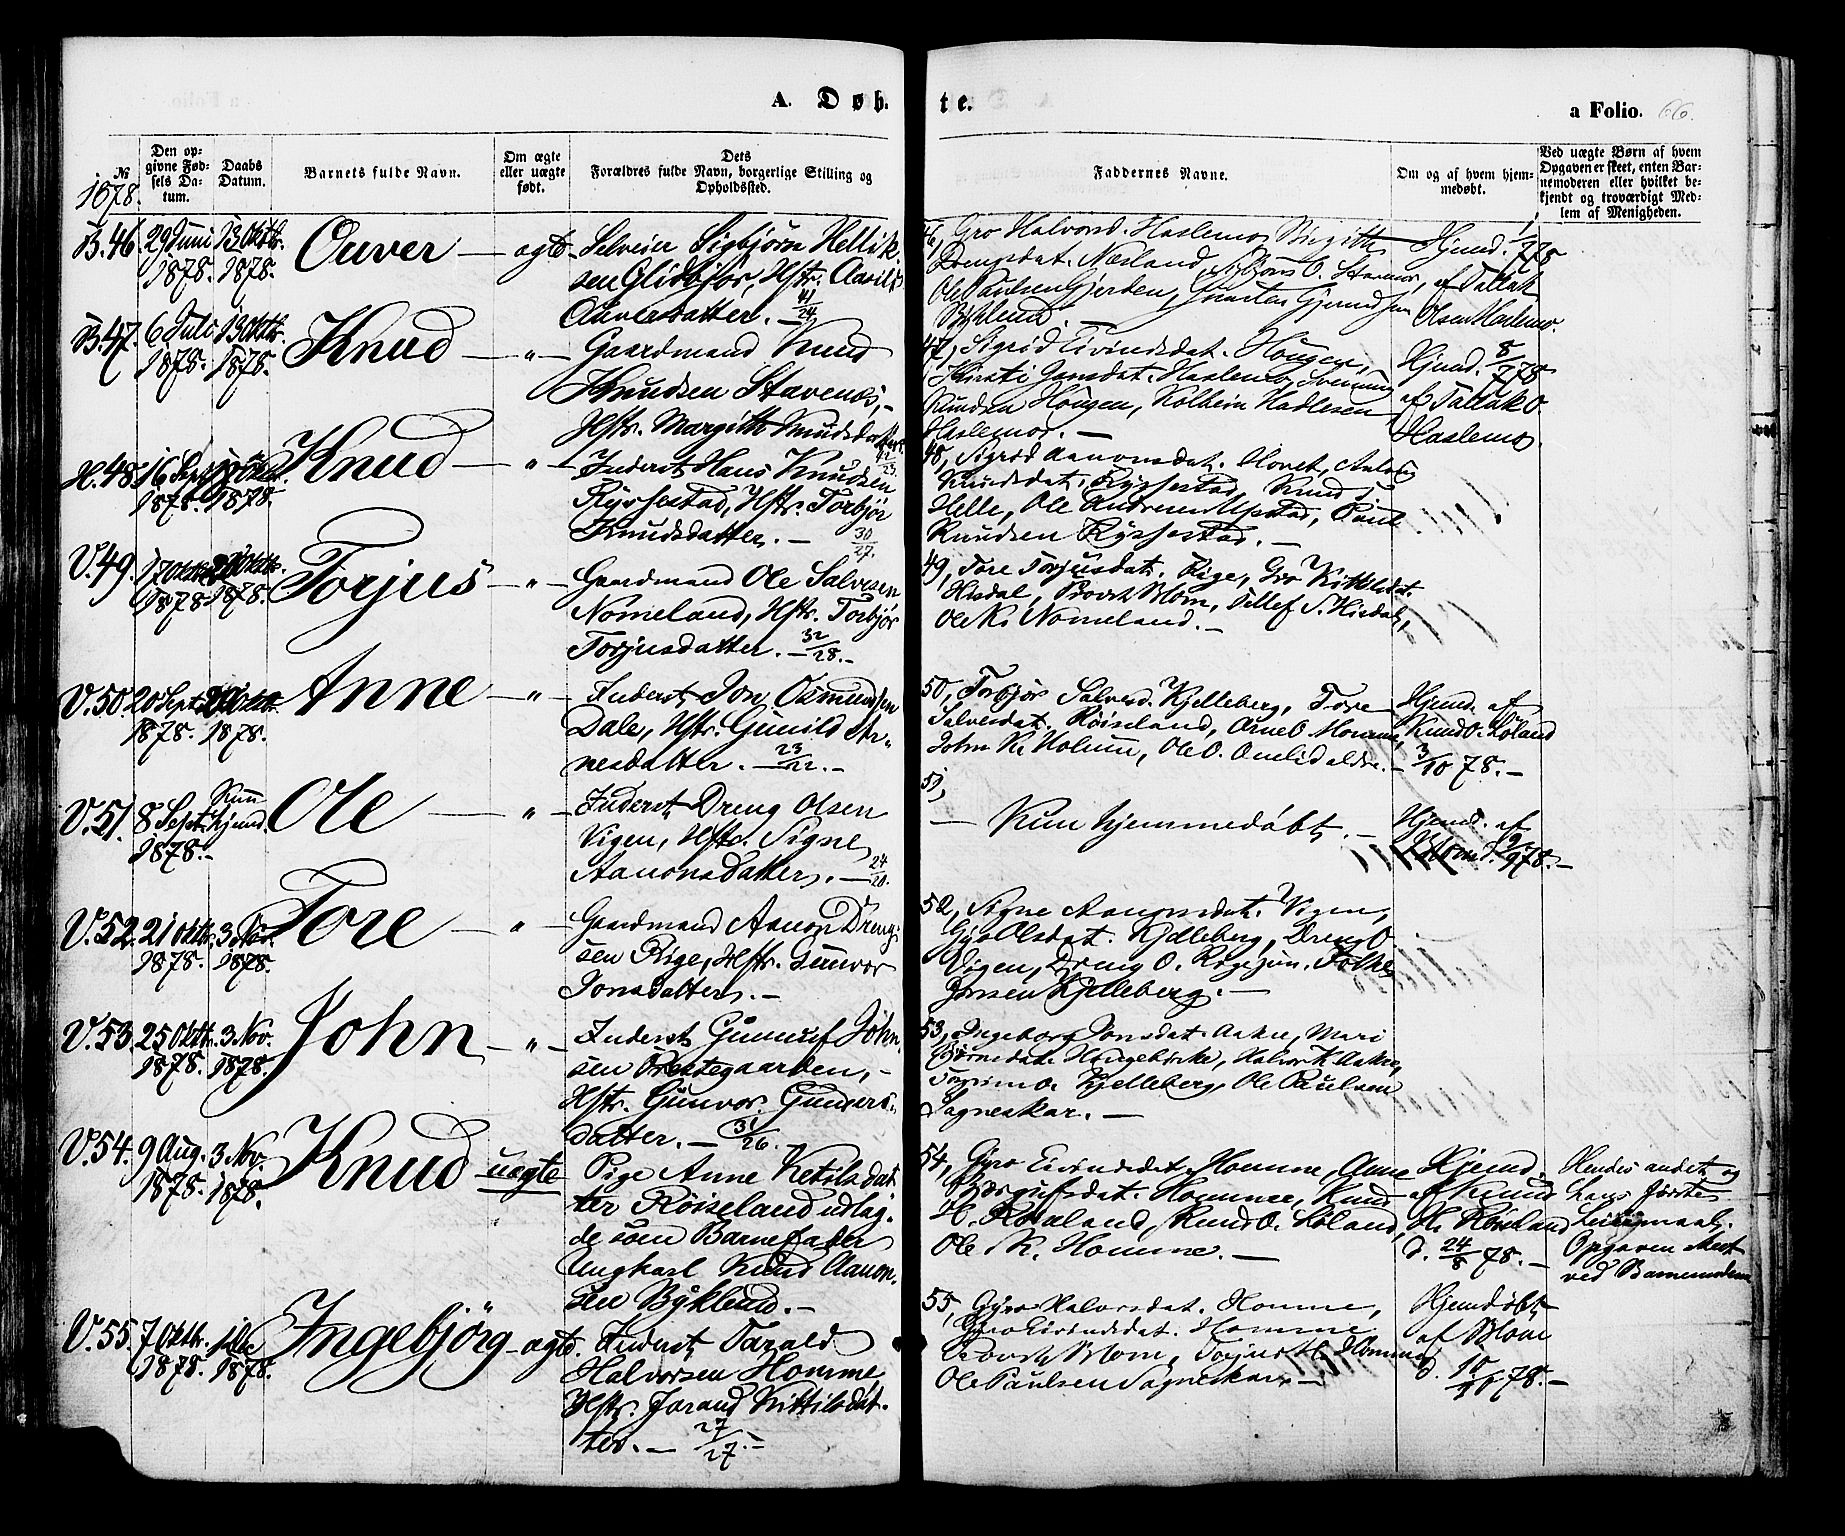 A. Døb.
te.
a Folio. 66.
№
1878.
Den opgivne Fødsels Datum.
Daabs Datum.
Barnets fulde Navn.
Om ægte eller uægte født.
Dets Forældres fulde Navn, borgerlige Stilling og Opholdssted.
Faddernes Navne.
Om og af hvem hjemmedøbt.
Ved uægte Børn af hvem Opgaven er skeet, enten Barnemoderen eller hvilket bekjendt og troværdigt Medlem af Menigheden.
B.46. 29 Juni 13 Oktbr. Ouver — ægte Selveier Sigbjørn Hellik-
1878. 1878. sen Glidbjør, Hstr. Aasild
Ouversdatter. — 41/24.
46, Gro Halvorsd. Haslemo, Birgith
Drengsdat. Næsland, O. Stamo,
Ole Paulsen Gjerden, Gjermundsen
Byklund. —
Hjemd. 1/7 78
af Tallak
Olsen Haslemo.
B.47. 6 Juli 13 Oktbr. Knud — „ — Gaardmand Knud
1878. 1878. Knudsen Stavenes, —
Hstr. Margith Knudsdatter.
47, Sigrød Eivindsdat. Hougen,
Kirsti Jonsdat. Haslemo,
Knudsen Hougen, Kolbein Hadlesen
Haslemo. —
Hjemd. 8/7 78
af Tallak O.
Haslemo.
H.48. 16 Sept. Oktbr. Knud — „ — Inderst Hans Knudsen 22/23
1878. 1878. Rysstad, Hstr. Torbjør
Knudsdatter. — 30/27.
48, Sigrød Aanonsdat. Hovet,
Knudsdat. Rysstad, Knud
Helle, Ole Andersen Upstad, Paul
Knudsen Rysstad. —
V.49. 17 Oktbr. 20 Oktbr. Torjus — „ — Gaardmand Ole Salvesen
1878. 1878. Nomeland, Hstr. Torbjør
Torjusdatter. — 32/28. —
49, Tore Torjusdat. Rige, Gro Kittilsdat.
Hisdal, Provst Blom, Tellef S. Hisdal,
Ole K. Nomeland. —
V.50. 20 Sept. 20 Oktbr. Anne — „ — Inderst Jon Osmundsen
1878. 1878. Dale, Hstr. Gunild Ar-
nesdatter. — 23/22. —
50, Torbjør Salvesd. Kjelleberg, Tore
Salvesdat. Røiseland, Arne O. Homme,
John K. Holum, Ole O. Omlid ældre. —
Hjemd. af
Knud O. Løland
3/10 78. —
V.51. 8 Sept. Kun hjemd. Ole — „ — Inderst Dreng Olsen
1878. — Vigen, Hstr. Signe
Aanonsdatter. — 24/20.
51,
— Kun hjemmedøbt. —
Hjemd. af
Blom d. 9/9 78. —
V.52. 21 Oktbr. 3 Nov. Tore — „ — Gaardmand Aanon Dreng-
1878. 1878. sen Rige, Hstr. Gunvor
Jonsdatter. —
52, Signe Aanonsdat. Vigen,
Gyro Olsdat. Kjelleberg, Dreng O.
Vigen, Dreng O. Rige jun. Folke
Jonsen Kjelleberg. —
V.53. 25 Oktbr. 3 Nov. John — „ — Inderst Gunnuf John-
1878. 1878. sen Prestegaarden, —
Hstr. Gunvor Gunders-
datter. — 31/26.
53, Ingeborg Jonsdat. Aakre, Mari
Bjørnsdat. Haugebirke, Halvor K. Aakre,
Torgrim O. Kjelleberg, Ole Paulsen
Sagneskar. —
V.54. 9 Aug. 3 Nov. Knud uægte Pige Anne Ketilsdat
1878. 1878. ter Røiseland udlag-
de som Barnefader
Ungkarl Knud Aanon-
sen Byklund. —
54, Gyro Eivindsdat. Homme, Anne
Bjørgufsdat. Homme, Knud
H. Røiseland, Knud O. Løland,
Ole K. Homme. —
Hjemd.
af Knud
H. Røiseland
d. 24/8 78. —
Hendes andet og
hans første
Leiermaal.
Opgaven skeet
ved Barnemoderen
V.55. 7 Oktbr. 1 Dec. Ingebjørg — ægte. Inderst Tarald
1878. 1878. Halvorsen Homme
Hstr. Jorand Kittilsdat-
ter. — 27/27. —
55, Gyro Halvorsdat. Homme,
Gyro Eivindsdat. Homme,
Provst Blom, Torjus H. Homme,
Ole Paulsen Sagneskar. —
Hjemdøbt
af Blom
d. 10/11 78. —